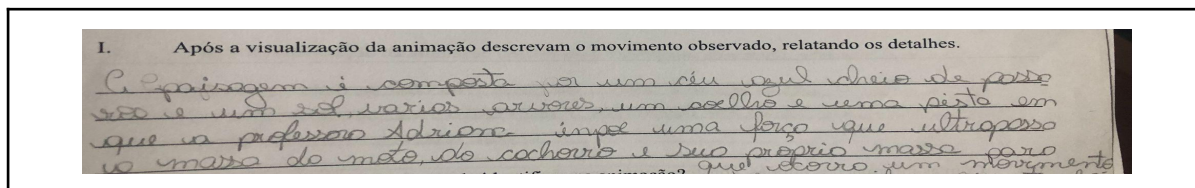 I. Após a visualização da animação descrevam o movimento observado, relatando os detalhes.
A paisagem é composta por um céu azul cheio de passa
ros e um sol, varias arvores, um coelho e uma pista em
que a professora Adriana impoe uma força que ultrapassa
a massa da moto, do cachorro e sua própria massa para
que ocorra um movimento